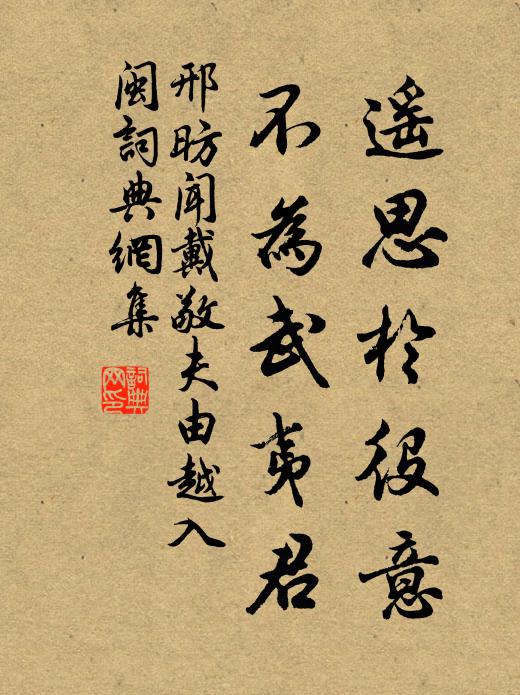 遥思於役意
不為武夷君
邢昉闻戴敬夫由越入
闽詞典網集
詞典
网印